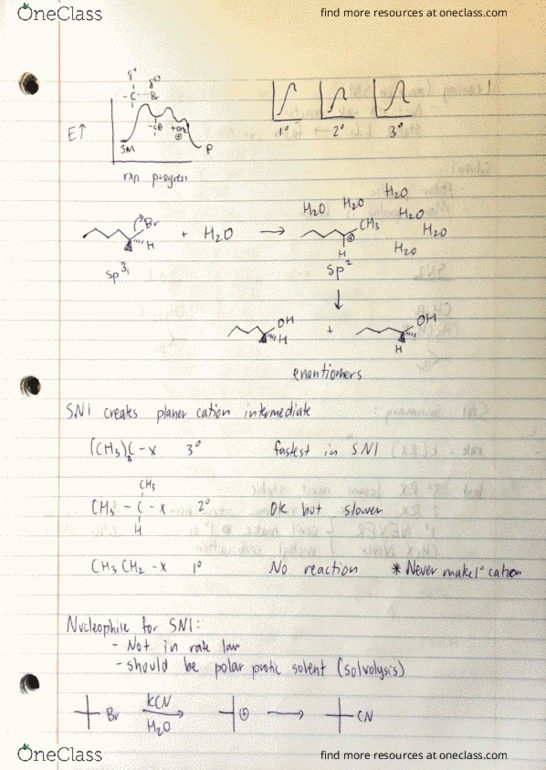 OneClass find more resources at oneclass.com
δ⁺ δ⁻
-C---Br
E↑
SM -C⊕ +OH₂ ⊕ P
1° 2° 3°
rxn progress
H₂O H₂O H₂O
Br + H₂O → CH₃ H₂O
H ⊕ H₂O
H H₂O
sp³ sp²
↓
OH + OH
H H
enantiomers
SN1 creates planer cation intermediate
(CH₃)₃C-X 3° fastest in SN1
CH₃
CH₃ - C - X 2° OK but slower
H
CH₃CH₂-X 1° No reaction * Never make 1° cation
Nucleophile for SN1:
- Not in rate law
- should be polar protic solvent (solvolysis)
Br KCN ⊕ → CN
H₂O
OneClass find more resources at oneclass.com